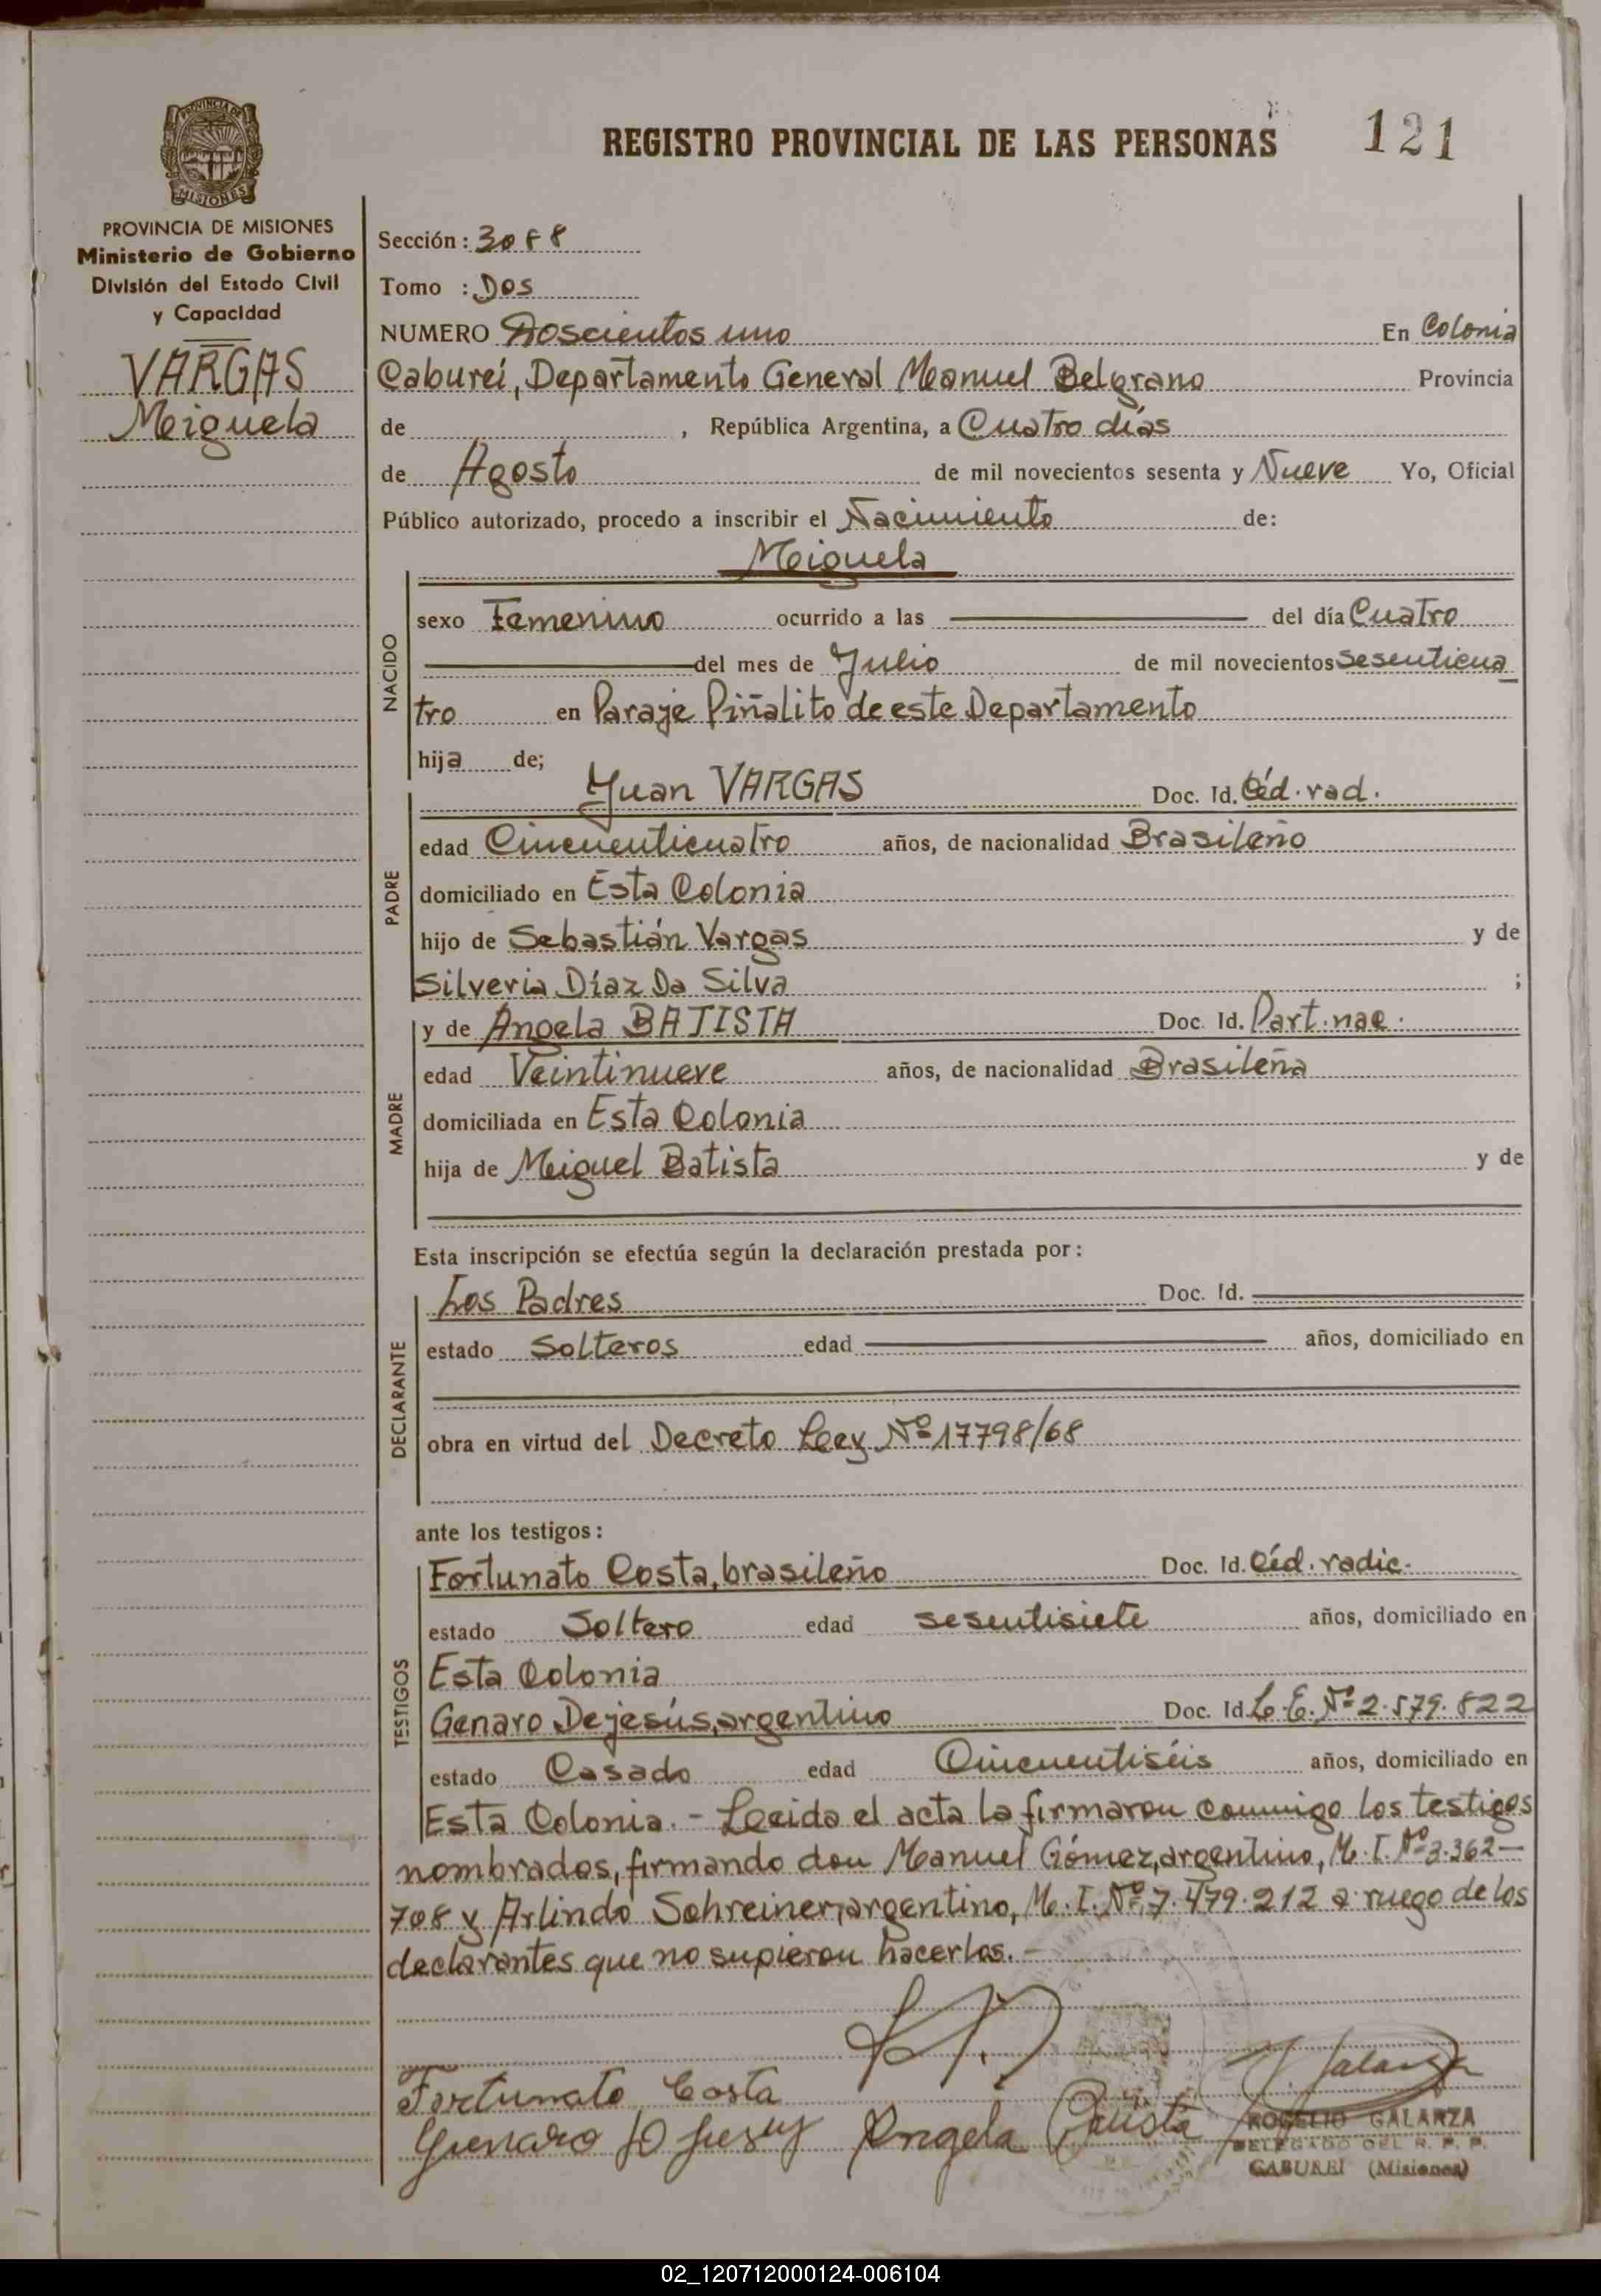 REGISTRO PROVINCIAL DE LAS PERSONAS 121
PROVINCIA DE
MISIONES
PROVINCIA DE MISIONES
Ministerio de Gobierno
División del Estado Civil
y Capacidad
VARGAS
Miguela
Sección: 3088
Tomo : Dos
NUMERO Doscientos uno En Colonia
Cabureí, Departamento General Manuel Belgrano Provincia
de , República Argentina, a Cuatro días
de Agosto de mil novecientos sesenta y Nueve Yo, Oficial
Público autorizado, procedo a inscribir el Nacimiento de:
Miguela
NACIDO
sexo Femenino ocurrido a las del día Cuatro
del mes de Julio de mil novecientos sesenticua
tro en Paraje Piñalito de este Departamento
hija de;
PADRE
Juan VARGAS Doc. Id. Céd. rad.
edad Cincuenticuatro años, de nacionalidad Brasileño
domiciliado en Esta Colonia
hijo de Sebastián Vargas y de
Silveria Díaz Da Silva ;
MADRE
y de Angela BATISTA Doc. Id. Part. nac.
edad Veintinueve años, de nacionalidad Brasileña
domiciliada en Esta Colonia
hija de Miguel Batista y de
Esta inscripción se efectúa según la declaración prestada por:
DECLARANTE
Los Padres Doc. Id.
estado Solteros edad años, domiciliado en
obra en virtud del Decreto Ley Nº 17798/68
ante los testigos:
TESTIGOS
Fortunato Costa, brasileño Doc. Id. Céd. radic.
estado Soltero edad sesentisiete años, domiciliado en
Esta Colonia
Genaro Dejesús, argentino Doc. Id. L.E. Nº 2.579.822
estado Casado edad Cincuentiséis años, domiciliado en
Esta Colonia. - Leida el acta la firmaron conmigo los testigos
nombrados, firmando don Manuel Gómez, argentino, M.I. Nº 3.362-
708 y Arlindo Schreiner, argentino, M.I. Nº 7.479.212 a ruego de los
declarantes que no supieron hacerlos. -
Fortunato Costa
Genaro D Jesus Angela Batista
R. Galarza
ROGELIO GALARZA
DELEGADO DEL R. P. P.
CABUREI (Misiones)
02_120712000124-006104